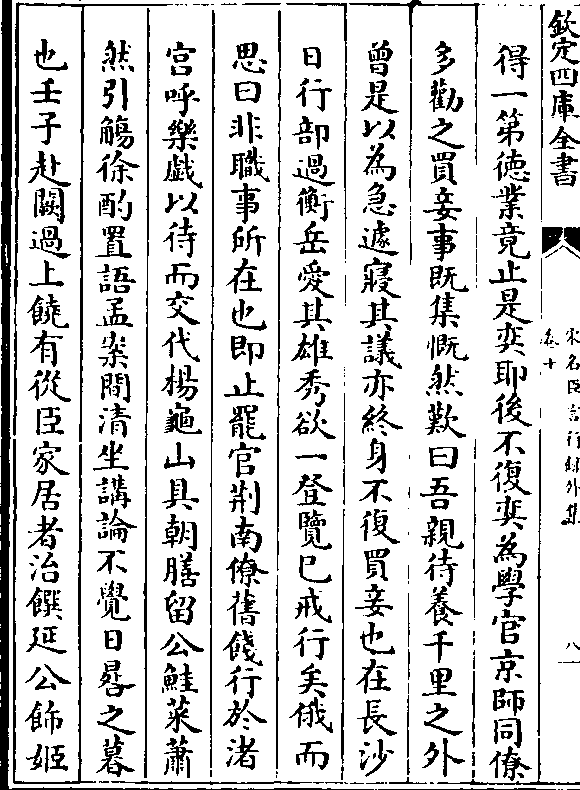 欽定四庫全書
宋名臣言行錄外集
卷十
八
得一第徳業竟止是奕耶後不復奕為學官京師同僚
多勸之買妾事既集慨然歎曰吾親待養千里之外
曾是以為急遽寝其議亦終身不復買妾也在長沙
日行部過衡岳愛其雄秀欲一登覽已戒行矣俄而
思曰非職事所在也即止罷官荆南僚舊餞行於渚
宫呼樂戲以待而交代楊龜山具朝膳留公鮭菜蕭
然引觴徐酌置語孟案間清坐講論不覺日晷之暮
也壬子赴闕過上饒有從臣家居者治饌延公飾姬